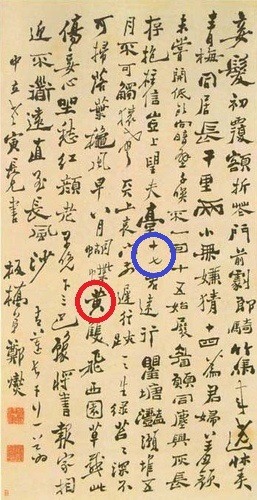 妾髮初覆額折花門前劇郎騎竹馬來遶牀弄
青梅同居長干里兩小無嫌猜十四為君婦羞顏
未嘗開低頭向暗壁千喚不一回十五始展眉願同塵與灰長
存抱柱信豈上望夫臺十七君遠行瞿塘灩澦堆五
月不可觸猿聲天上哀門前遲行跡一一生綠苔苔深不
可掃落葉秋風早八月蝴蝶黃雙飛西園草感此
傷妾心坐愁紅顏老早晚下三巴豫將書報家相
迎不道遠直至長風沙 青蓮長干行一首為
寅長兄書 板橋弟鄭燮